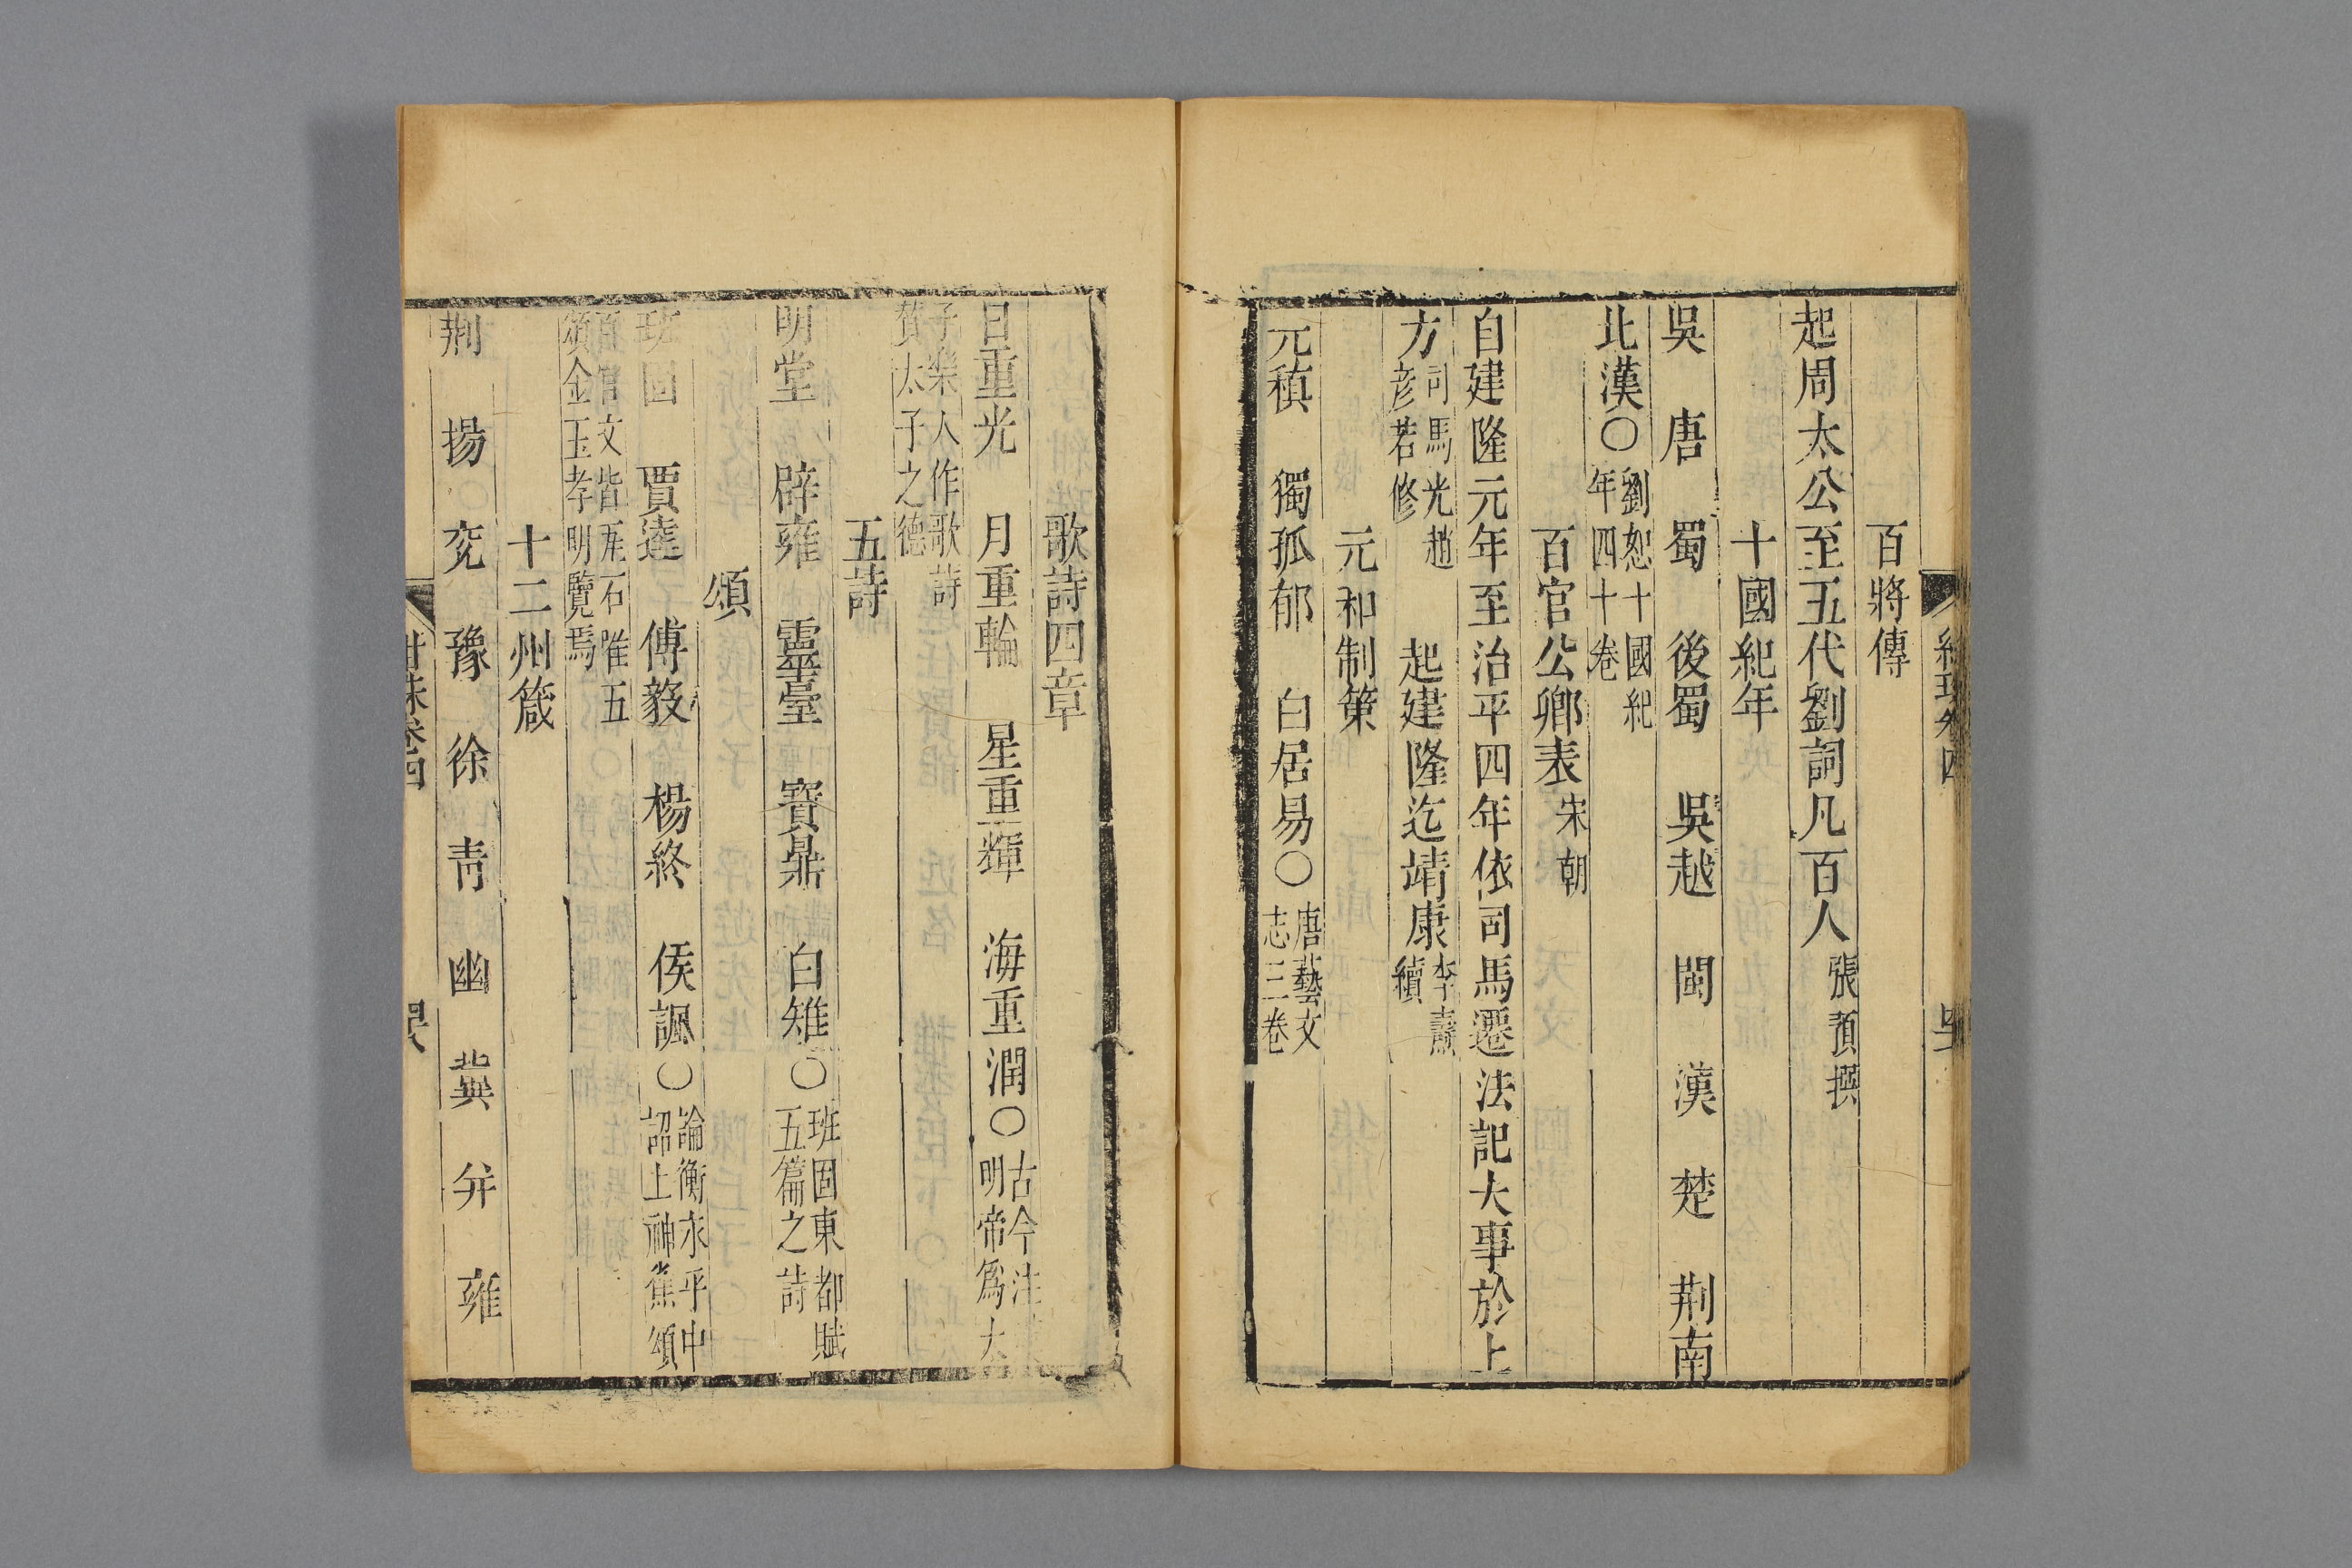 百將傳
起周太公至五代劉詞凡百人張預撰
十國紀年
吳　唐　蜀　後蜀　吳越　閩　漢　楚　荆南
北漢〇劉恕十國紀年四十卷
百官公卿表宋朝
自建隆元年至治平四年依司馬遷法記大事於上
方司馬光趙彦若修　起建隆迄靖康李燾續
元和制策
元稹　獨孤郁　白居易〇唐藝文志三卷
歌詩四章
日重光　月重輪　星重輝　海重潤〇古今注明帝爲太
子樂人作歌詩賛太子之德
五詩
明堂　辟雍　靈臺　寶鼎　白雉〇班固東都賦五篇之詩
頌
班固　賈逵　傅毅　楊終　侯諷〇論衡永平中詔上神雀頌
百官文皆瓦石唯五頌金玉孝明覽焉
十二州箴
荆　揚　兖　豫　徐　靑　幽　冀　并　雍